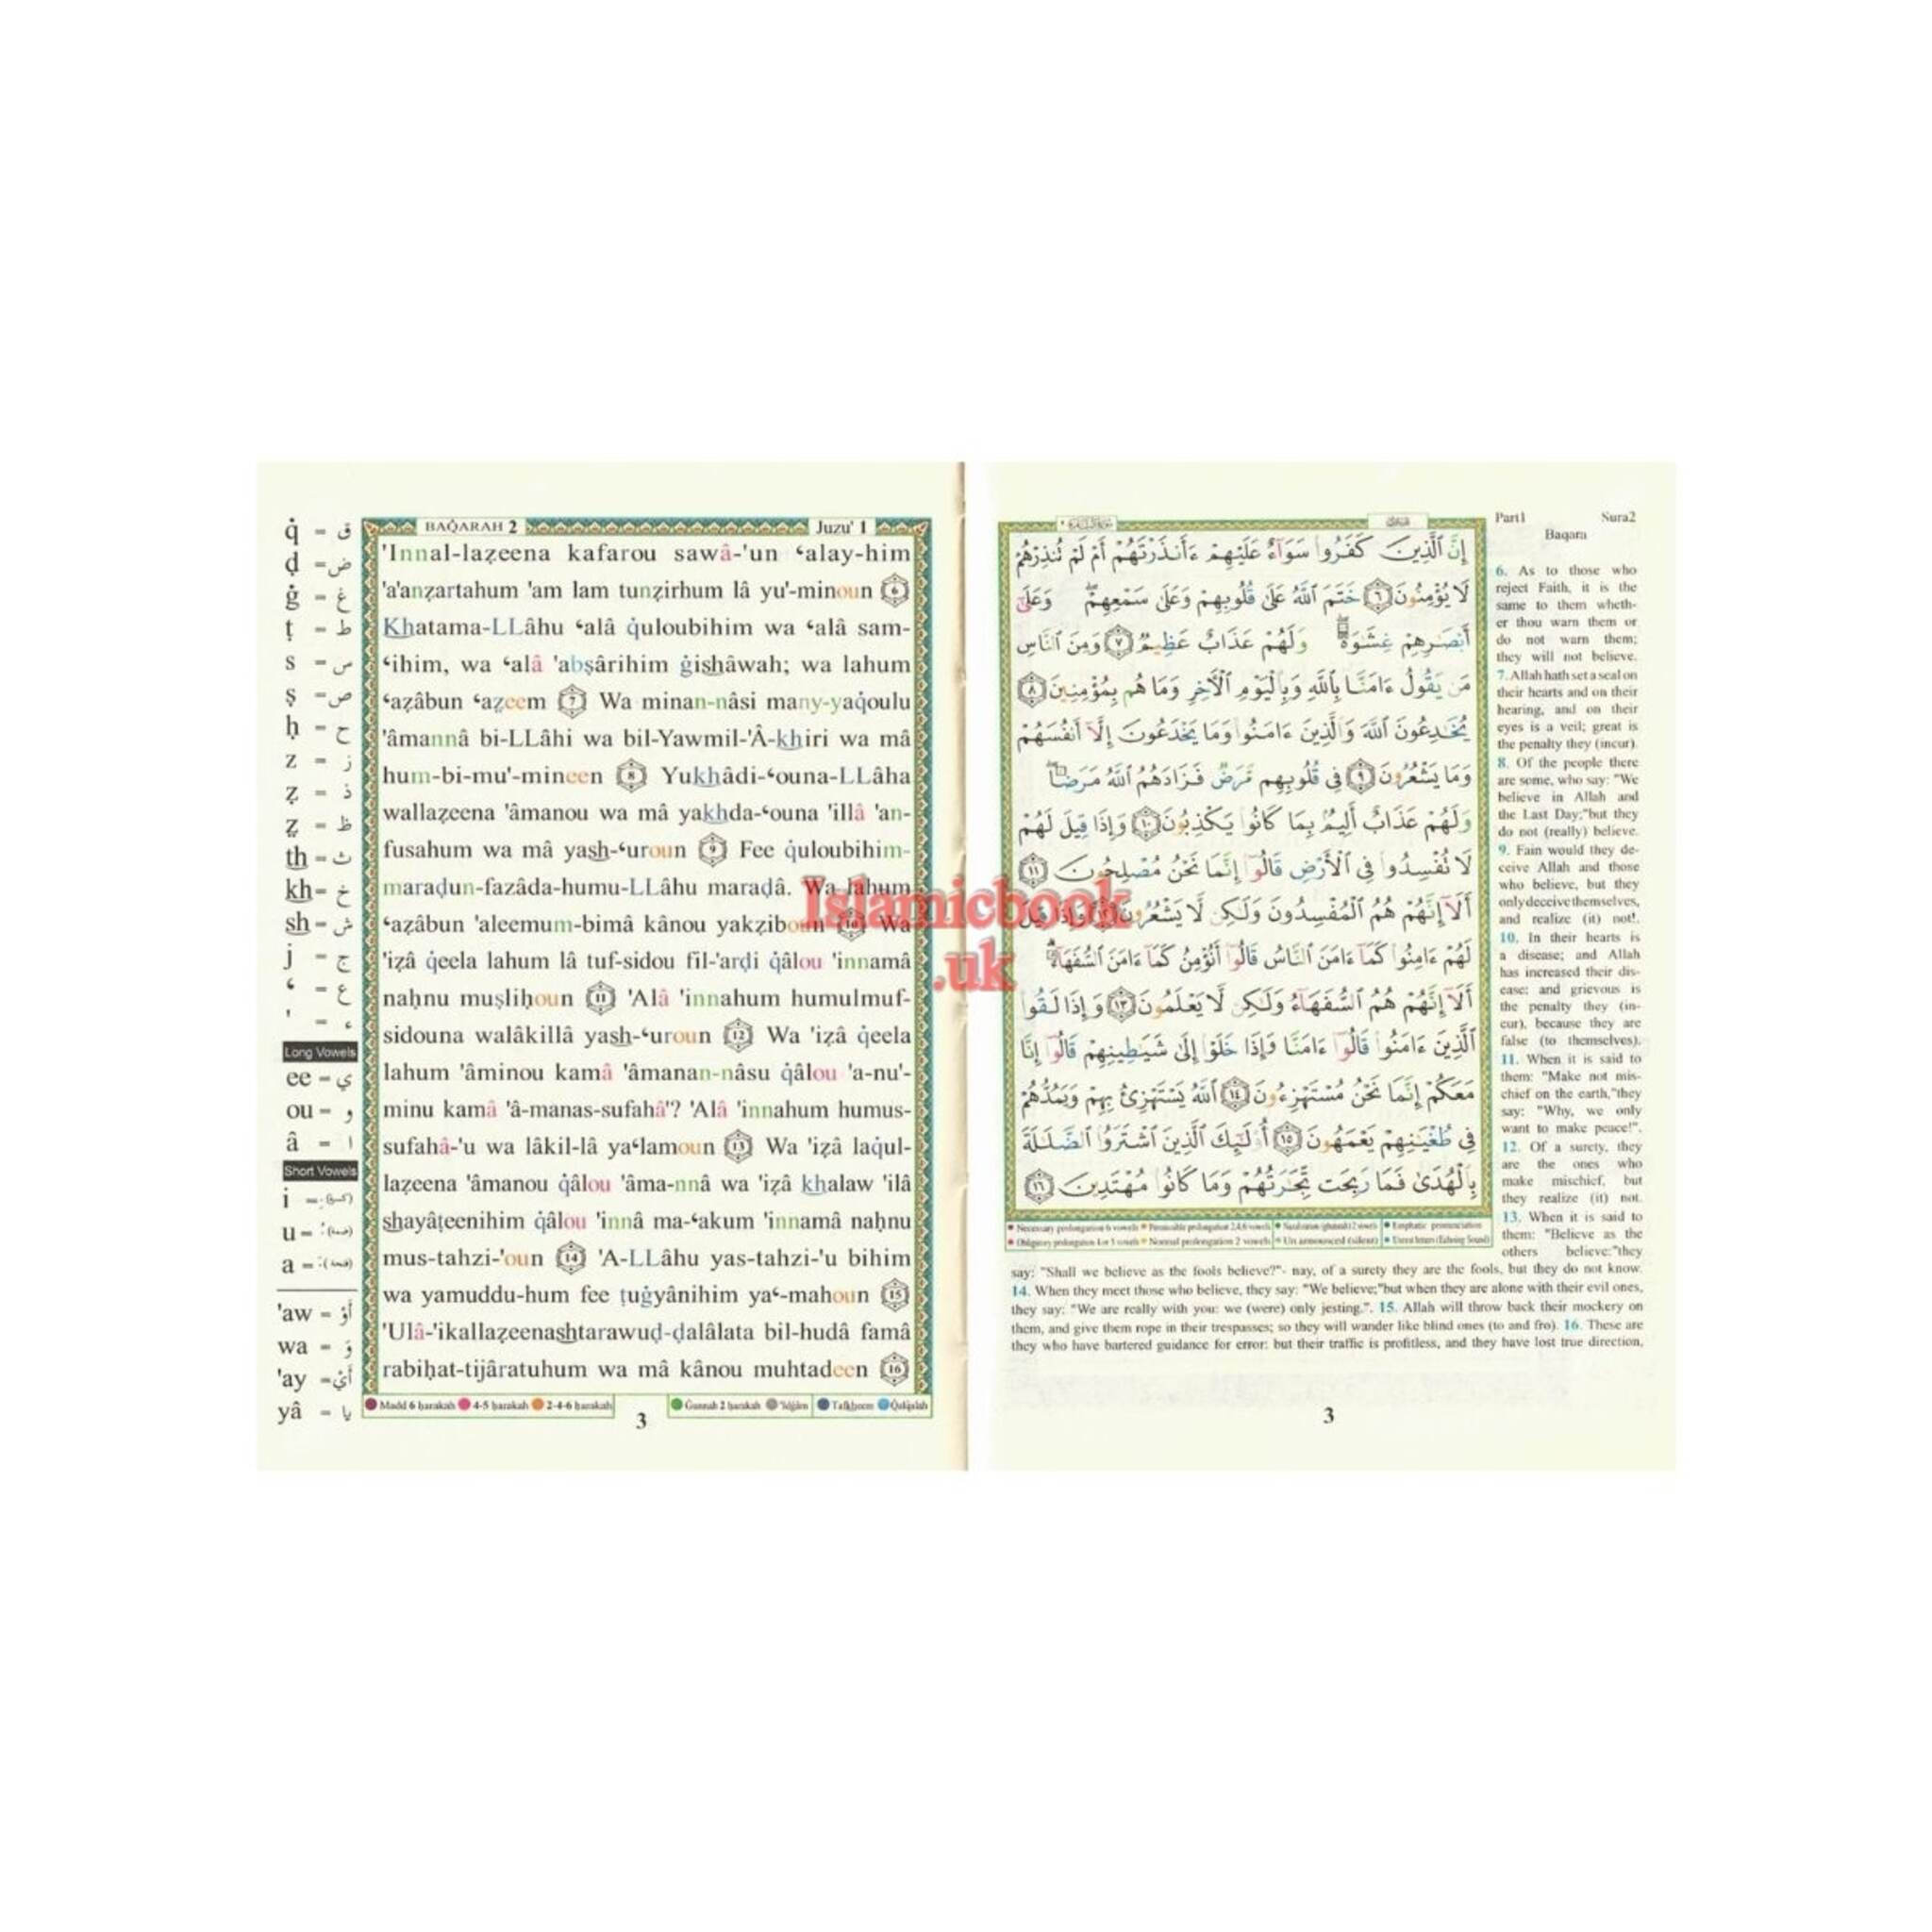 q̇ = ق
ḍ = ض
ġ = غ
ṭ = ط
s = س
ṣ = ص
ḥ = ح
z = ز
ẓ = ذ
ẓ = ظ
th = ث
kh = خ
sh = ش
j = ج
‘ = ع
' = ء
Long Vowels
ee = ي
ou = و
â = ا
Short Vowels
i =
u =
a =
'aw = أَوْ
wa = وَ
'ay = أَيْ
yâ = يا
BAQ̇ARAH 2 Juzu' 1
'Innal-laẓeena kafarou sawâ-'un ‘alay-him
'a'anẓartahum 'am lam tunẓirhum lâ yu'-minoun 6
Khatama-LLâhu ‘alâ q̇uloubihim wa ‘alâ sam-
‘ihim, wa ‘alâ 'abṣârihim ġishâwah; wa lahum
‘aẓâbun ‘aẓeem 7 Wa minan-nâsi many-yaq̇oulu
'âmannâ bi-LLâhi wa bil-Yawmil-'Â-khiri wa mâ
hum-bi-mu'-mineen 8 Yukhâdi-‘ouna-LLâha
wallaẓeena 'âmanou wa mâ yakhda-‘ouna 'illâ 'an-
fusahum wa mâ yash-‘uroun 9 Fee q̇uloubihim-
maraḍun-fazâda-humu-LLâhu maraḍâ. Wa lahum
‘aẓâbun 'aleemum-bimâ kânou yakẓiboun 10 Wa
'iẓâ q̇eela lahum lâ tuf-sidou fil-'arḍi q̇âlou 'innamâ
naḥnu muṣliḥoun 11 'Alâ 'innahum humulmuf-
sidouna walâkillâ yash-‘uroun 12 Wa 'iẓâ q̇eela
lahum 'âminou kamâ 'âmanan-nâsu q̇âlou 'a-nu'-
minu kamâ 'â-manas-sufahâ'? 'Alâ 'innahum humus-
sufahâ-'u wa lâkil-lâ ya‘lamoun 13 Wa 'iẓâ laq̇ul-
laẓeena 'âmanou q̇âlou 'âma-nnâ wa 'iẓâ khalaw 'ilâ
shayâṭeenihim q̇âlou 'innâ ma-‘akum 'innamâ naḥnu
mus-tahzi-'oun 14 'A-LLâhu yas-tahzi-'u bihim
wa yamuddu-hum fee ṭuġyânihim ya‘-mahoun 15
'Ulâ-'ikallaẓeenashtarawuḍ-ḍalâlata bil-hudâ famâ
rabiḥat-tijâratuhum wa mâ kânou muhtadeen 16
Madd 6 ḥarakah 4-5 ḥarakah 2-4-6 ḥarakah Ġunnah 2 ḥarakah 'Idġâm Tafkheem Q̇alq̇alah
3
إِنَّ ٱلَّذِينَ كَفَرُوا۟ سَوَآءٌ عَلَيْهِمْ ءَأَنذَرْتَهُمْ أَمْ لَمْ تُنذِرْهُمْ
لَا يُؤْمِنُونَ ٦ خَتَمَ ٱللَّهُ عَلَىٰ قُلُوبِهِمْ وَعَلَىٰ سَمْعِهِمْ ۖ وَعَلَىٰٓ
أَبْصَـٰرِهِمْ غِشَـٰوَةٌ ۖ وَلَهُمْ عَذَابٌ عَظِيمٌ ٧ وَمِنَ ٱلنَّاسِ
مَن يَقُولُ ءَامَنَّا بِٱللَّهِ وَبِٱلْيَوْمِ ٱلْـَٔاخِرِ وَمَا هُم بِمُؤْمِنِينَ ٨
يُخَـٰدِعُونَ ٱللَّهَ وَٱلَّذِينَ ءَامَنُوا۟ وَمَا يَخْدَعُونَ إِلَّآ أَنفُسَهُمْ
وَمَا يَشْعُرُونَ ٩ فِى قُلُوبِهِم مَّرَضٌ فَزَادَهُمُ ٱللَّهُ مَرَضًا ۖ
وَلَهُمْ عَذَابٌ أَلِيمٌۢ بِمَا كَانُوا۟ يَكْذِبُونَ ١٠ وَإِذَا قِيلَ لَهُمْ
لَا تُفْسِدُوا۟ فِى ٱلْأَرْضِ قَالُوٓا۟ إِنَّمَا نَحْنُ مُصْلِحُونَ ١١
أَلَآ إِنَّهُمْ هُمُ ٱلْمُفْسِدُونَ وَلَـٰكِن لَّا يَشْعُرُونَ ١٢ وَإِذَا قِيلَ
لَهُمْ ءَامِنُوا۟ كَمَآ ءَامَنَ ٱلنَّاسُ قَالُوٓا۟ أَنُؤْمِنُ كَمَآ ءَامَنَ ٱلسُّفَهَآءُ ۗ
أَلَآ إِنَّهُمْ هُمُ ٱلسُّفَهَآءُ وَلَـٰكِن لَّا يَعْلَمُونَ ١٣ وَإِذَا لَقُوا۟
ٱلَّذِينَ ءَامَنُوا۟ قَالُوٓا۟ ءَامَنَّا وَإِذَا خَلَوْا۟ إِلَىٰ شَيَـٰطِينِهِمْ قَالُوٓا۟ إِنَّا
مَعَكُمْ إِنَّمَا نَحْنُ مُسْتَهْزِءُونَ ١٤ ٱللَّهُ يَسْتَهْزِئُ بِهِمْ وَيَمُدُّهُمْ
فِى طُغْيَـٰنِهِمْ يَعْمَهُونَ ١٥ أُو۟لَـٰٓئِكَ ٱلَّذِينَ ٱشْتَرَوُا۟ ٱلضَّلَـٰلَةَ
بِٱلْهُدَىٰ فَمَا رَبِحَت تِّجَـٰرَتُهُمْ وَمَا كَانُوا۟ مُهْتَدِينَ ١٦
Necessary prolongation 6 vowels Permissible prolongation 2,4,6 vowels Nazalization (ghunnah) 2 vowels Emphatic pronunciation
Obligatory prolongation 4 or 5 vowels Normal prolongation 2 vowels Un announced (silent) Unrest letters (Echoing Sound)
Part1 Sura2
Baqara
6. As to those who
reject Faith, it is the
same to them wheth-
er thou warn them or
do not warn them;
they will not believe.
7. Allah hath set a seal on
their hearts and on their
hearing, and on their
eyes is a veil; great is
the penalty they (incur).
8. Of the people there
are some, who say: "We
believe in Allah and
the Last Day;"but they
do not (really) believe.
9. Fain would they de-
ceive Allah and those
who believe, but they
only deceive themselves,
and realize (it) not!.
10. In their hearts is
a disease; and Allah
has increased their dis-
ease: and grievous is
the penalty they (in-
cur), because they are
false (to themselves).
11. When it is said to
them: "Make not mis-
chief on the earth,"they
say: "Why, we only
want to make peace!".
12. Of a surety, they
are the ones who
make mischief, but
they realize (it) not.
13. When it is said to
them: "Believe as the
others believe:"they
say: "Shall we believe as the fools believe?"- nay, of a surety they are the fools, but they do not know.
14. When they meet those who believe, they say: "We believe;"but when they are alone with their evil ones,
they say: "We are really with you: we (were) only jesting.". 15. Allah will throw back their mockery on
them, and give them rope in their trespasses; so they will wander like blind ones (to and fro). 16. These are
they who have bartered guidance for error: but their traffic is profitless, and they have lost true direction,
3
Islamicbook
.uk